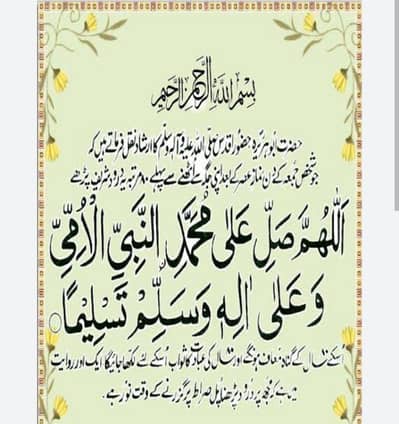 بِسْمِ اللّٰهِ الرَّحْمٰنِ الرَّحِيْمِ
حضرت ابوہریرہؓ حضور اقدس صلی اللہ علیہ وآلہ وسلم کا ارشاد نقل فرماتے ہیں کہ
جو شخص جمعہ کے دن نماز عصر کے بعد اپنی جگہ سے اٹھنے سے پہلے ۸۰ مرتبہ یہ درود شریف پڑھے
اَللّٰهُمَّ صَلِّ عَلٰى مُحَمَّدِ النَّبِيِّ الْاُمِّيِّ
وَعَلٰى اٰلِهٖ وَسَلِّمْ تَسْلِيْمًا
اُسکے ۸۰ سال کے گناہ معاف ہونگے اور ۸۰ سال کی عبادت کا ثواب اُسکے لئے لکھا جائیگا ایک اور روایت
میں ہے کہ مجھ پر درود پڑھنا پل صراط پر گزرنے کے وقت نور ہے۔